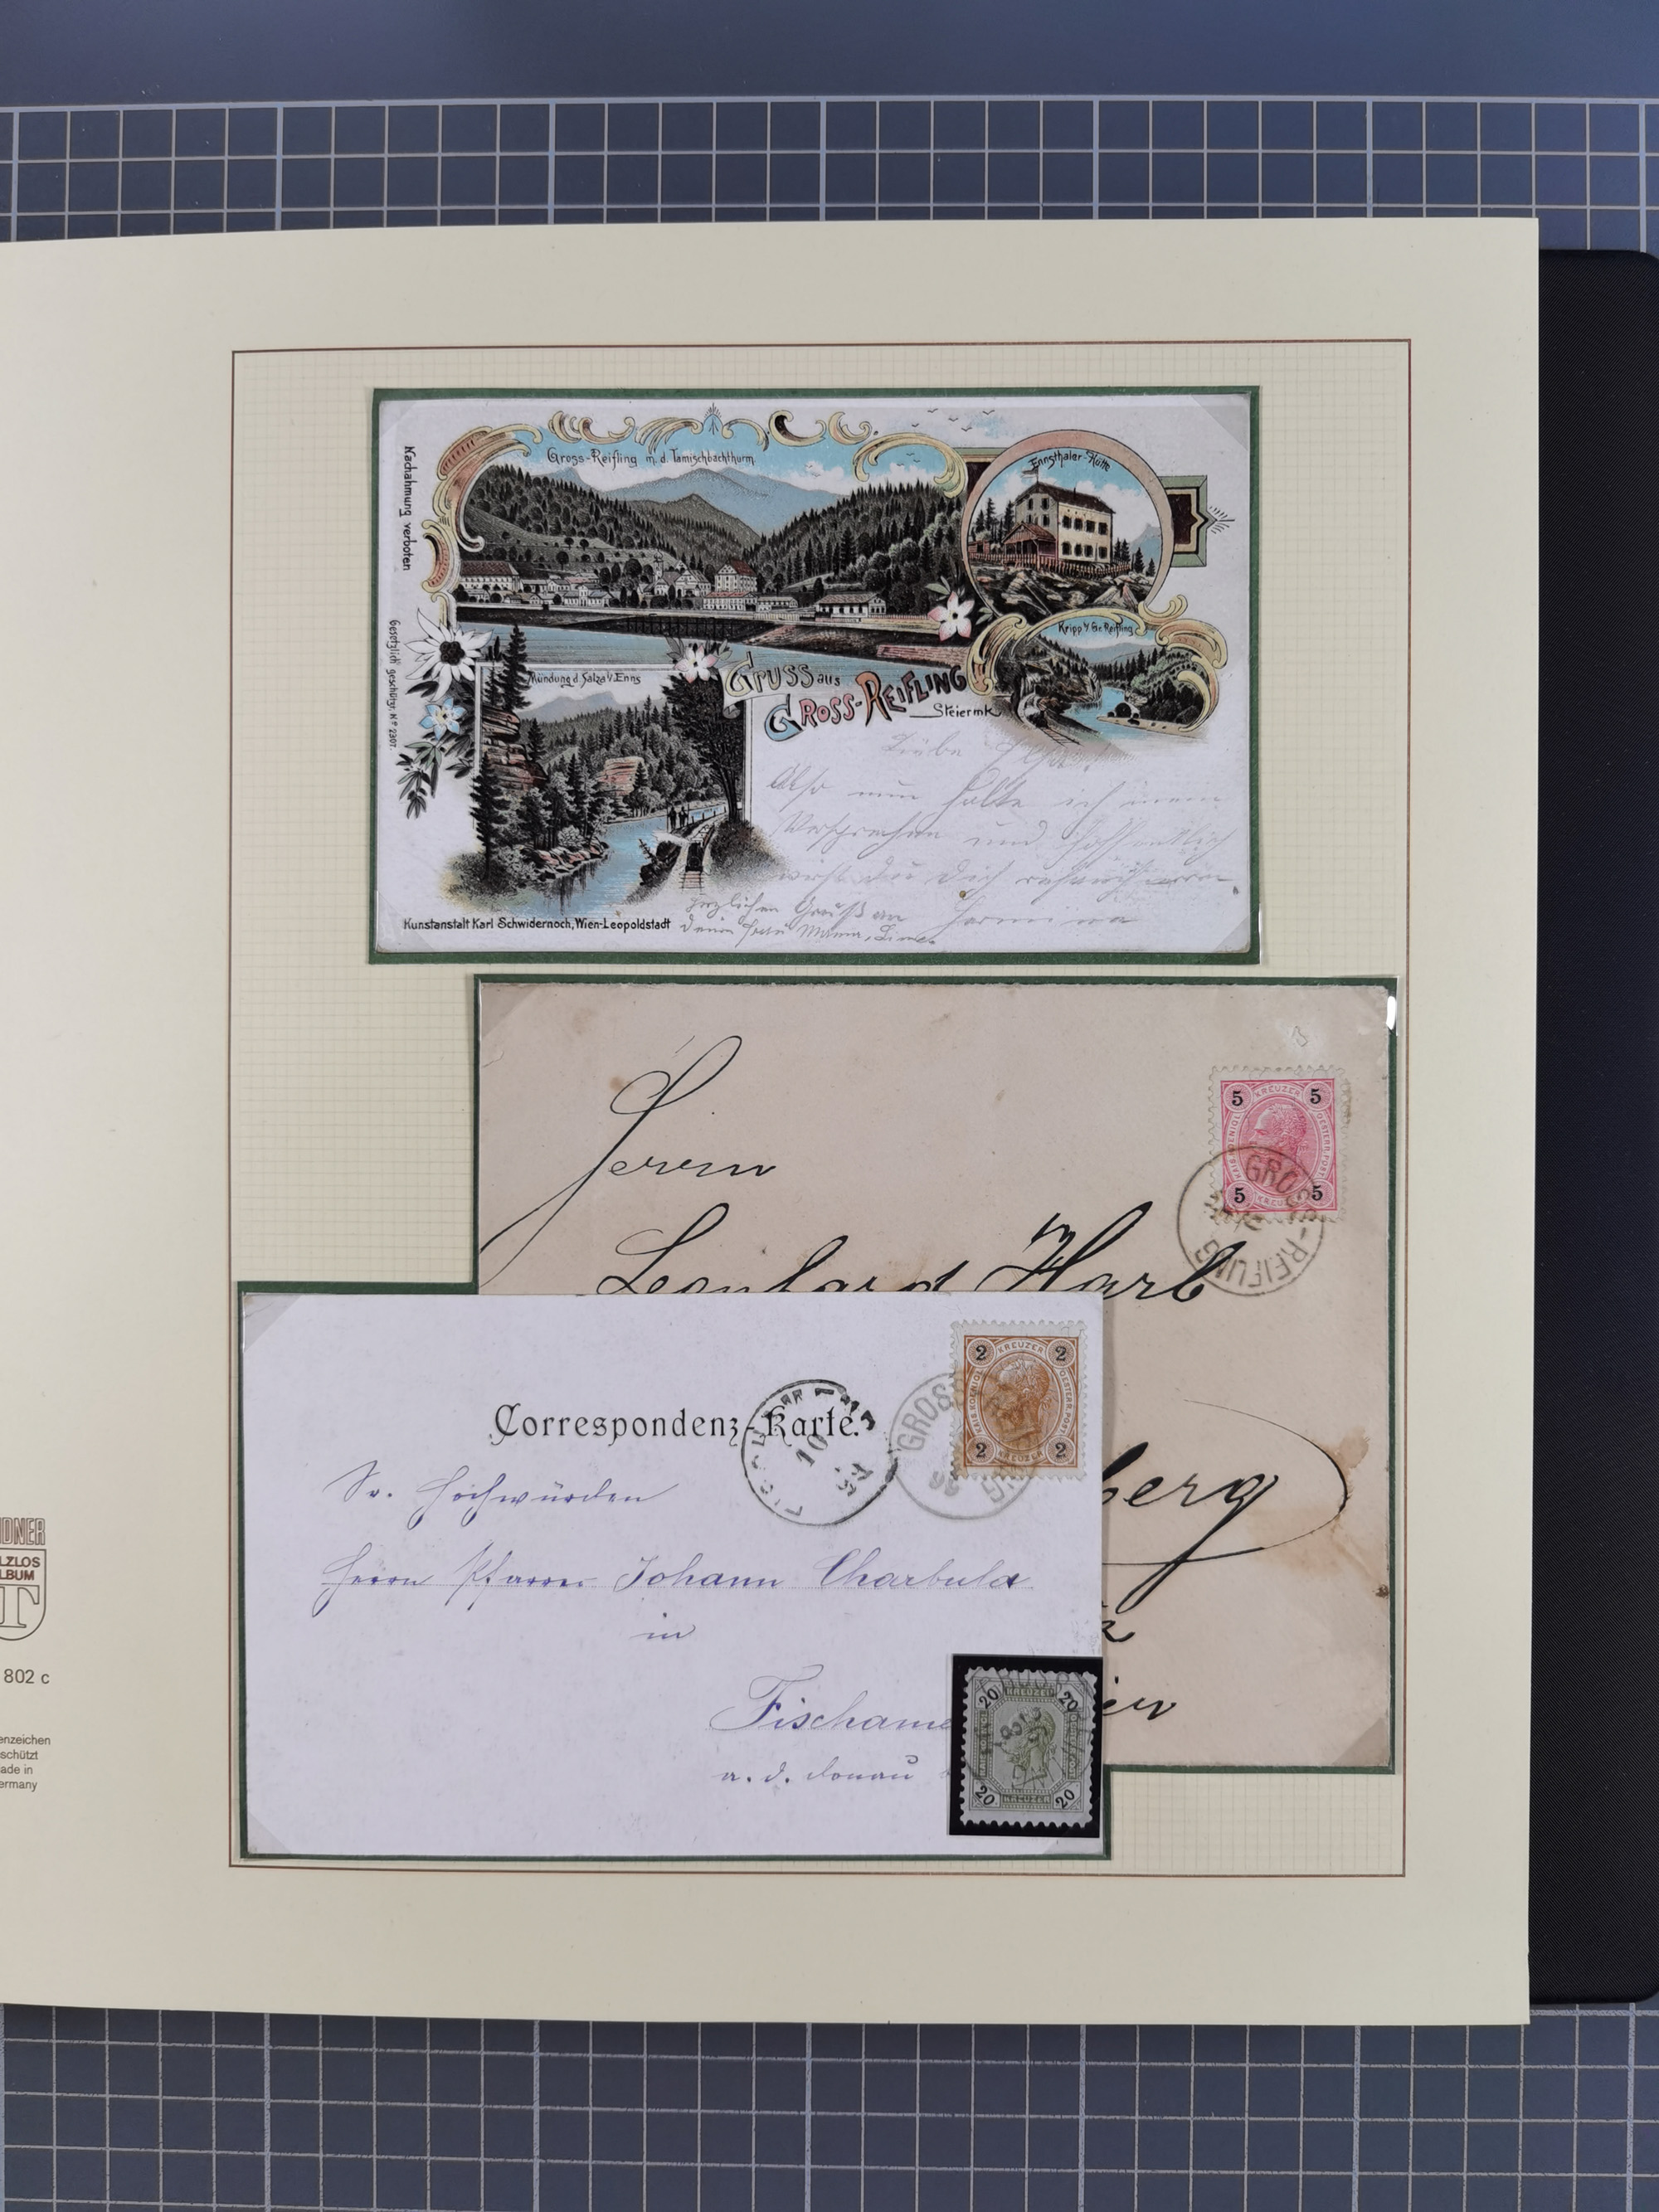 Gross-Reifling m. d. Tamischbachthurm
Ennsthaler-Hütte
Nachahmung verboten
Gesetzlich geschützt. No 2307.
Kripp b/ Gr. Reifling
Mündung d. Salza i/ Enns
Gruss aus
Gross-Reifling
Steiermk
Liebe
Also nun halte ich mein
Versprechen und hoffentlich
wirst du Dich
herzlichen Gruß an Hermine
Mama,
Kunstanstalt Karl Schwidernoch, Wien-Leopoldstadt
5 KREUZER 5
KAIS. KOENIGL. OESTERR. POST.
5 KREUZER 5
GROSS-REIFLING
Herrn
Leonhard Harb
berg
Correspondenz-Karte.
2 KREUZER 2
KAIS. KOENIGL. OESTERR. POST.
2 KREUZER 2
GROSS
NG
10
Sr. Hochwürden
Herrn Pfarrer Johann Charbula
in
Fischame
a. d. Donau
20 KREUZER 20
20 KREUZER 20
DNER
LZLOS
LBUM
T
802 c
enzeichen
schützt
ade in
ermany